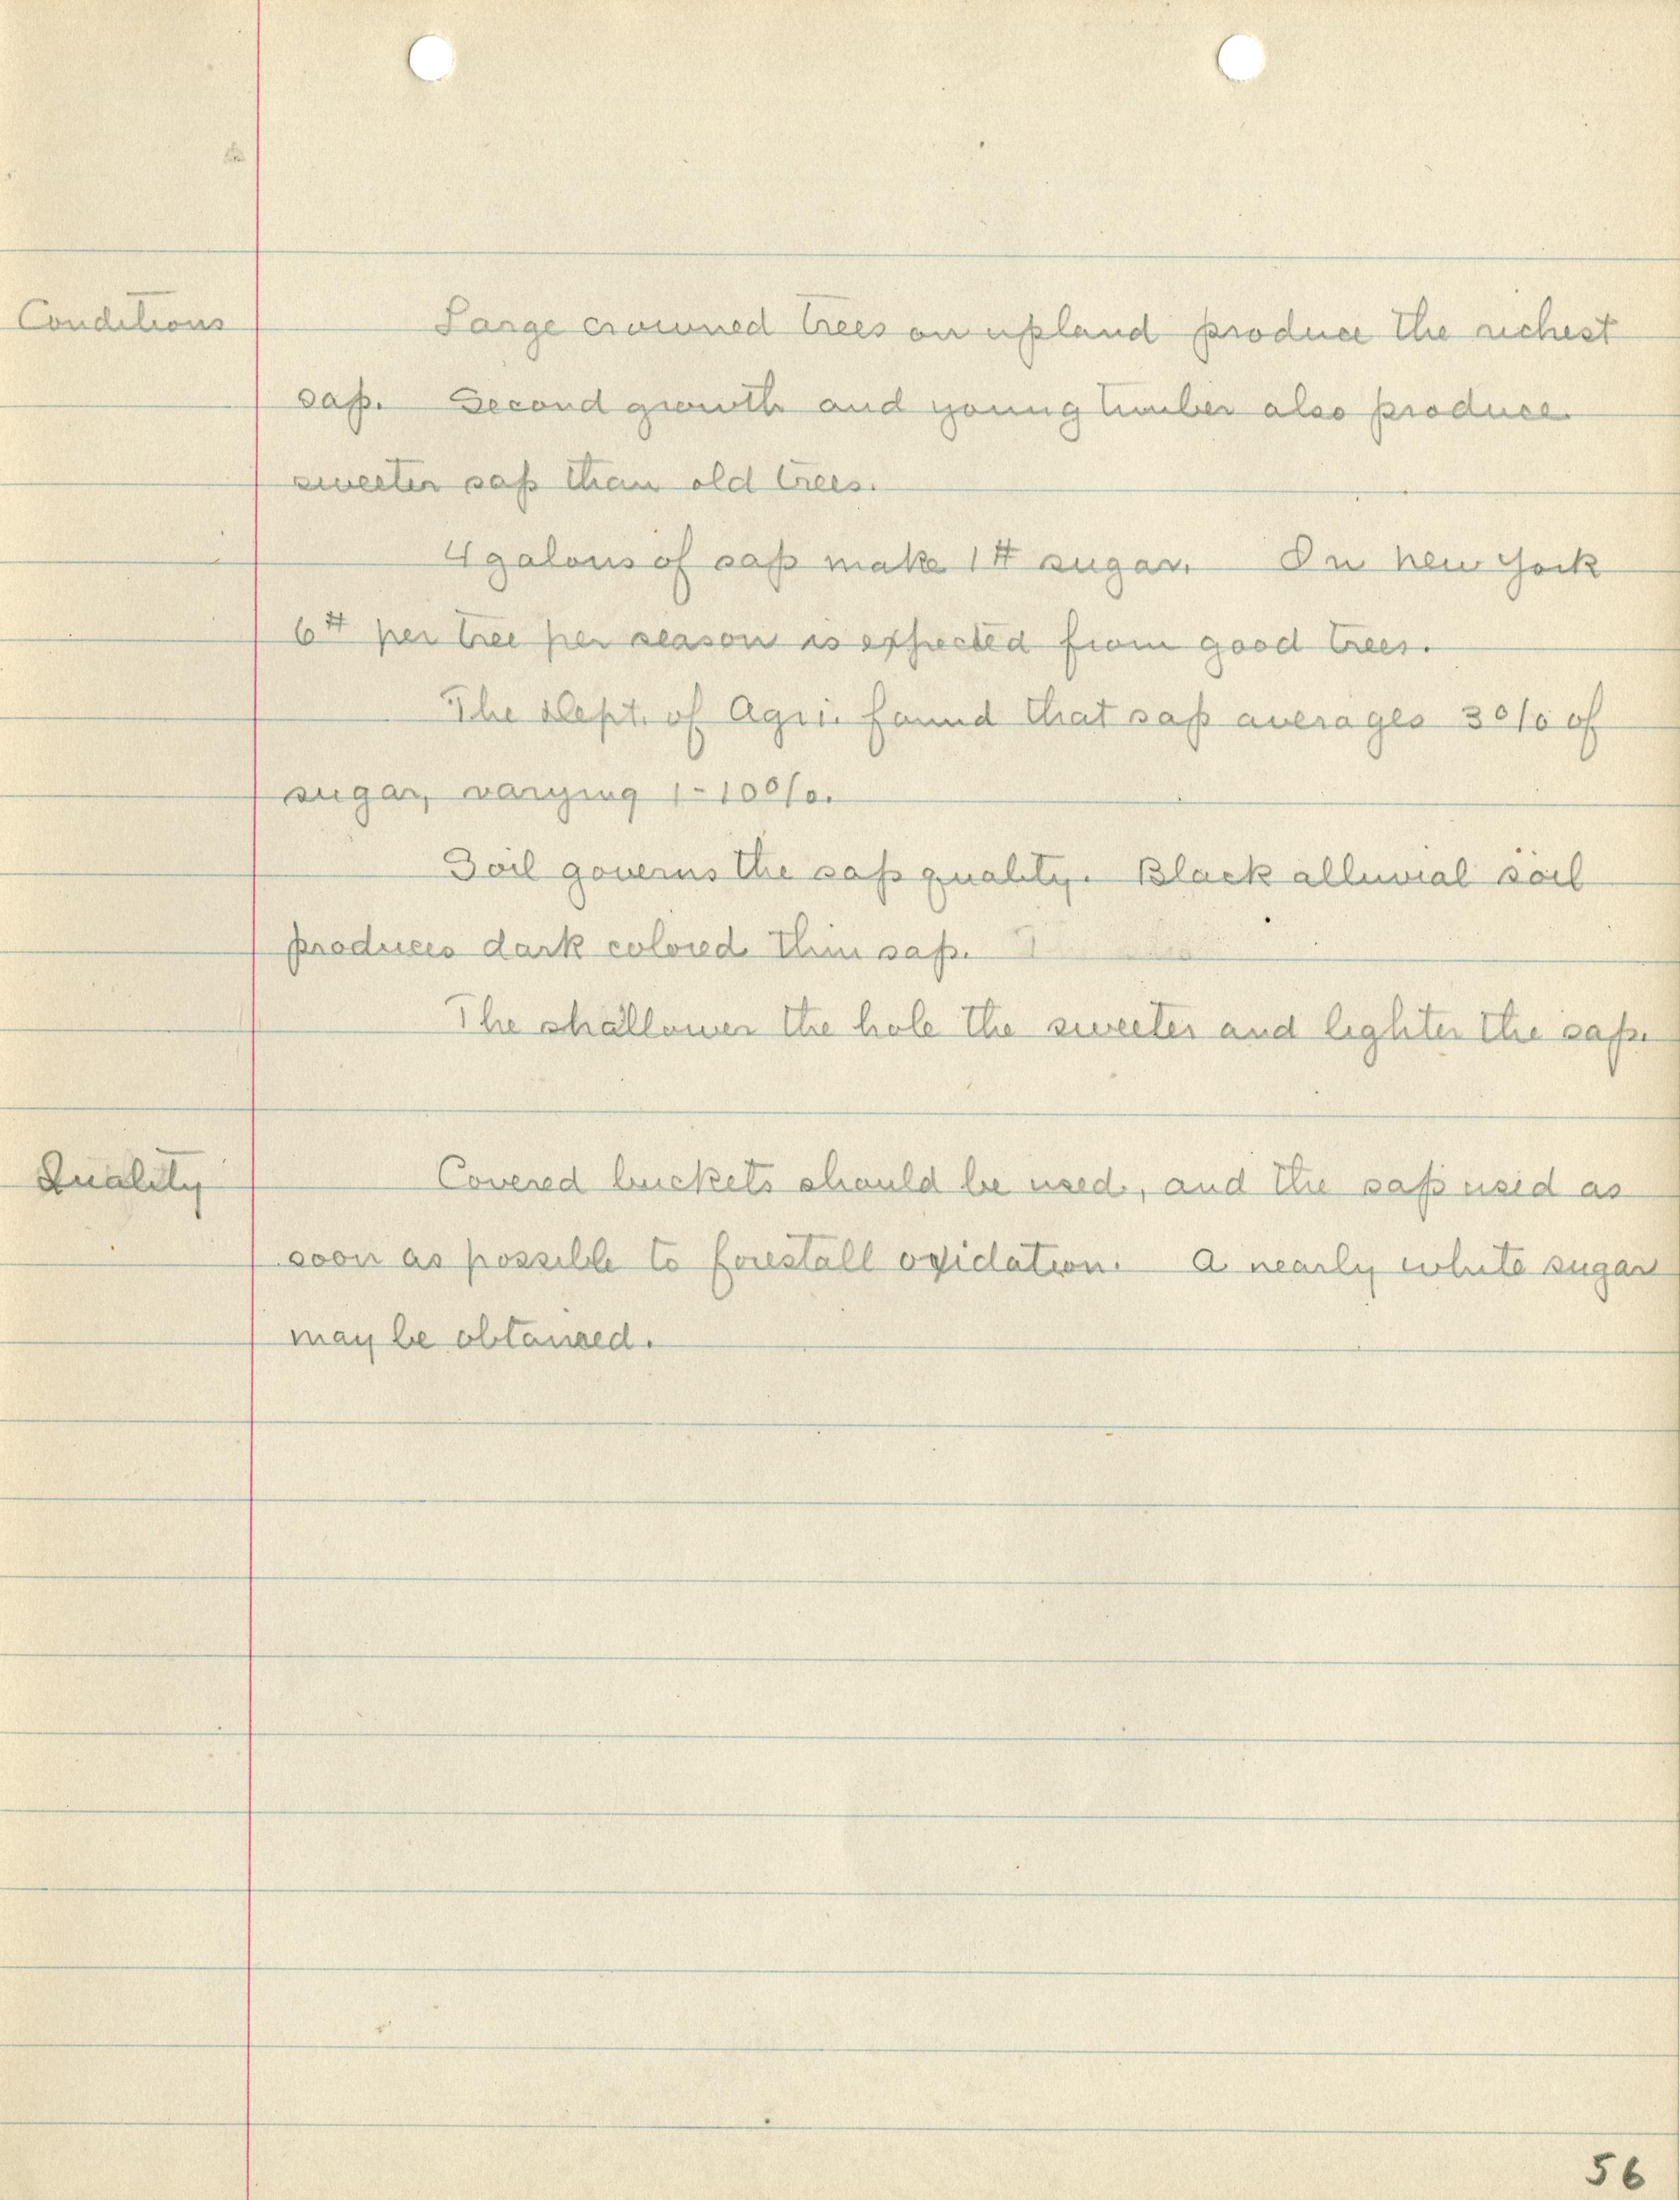 Conditions
Large crowned trees on upland produce the richest
sap. Second growth and young timber also produce
sweeter sap than old trees.
4 galons of sap make 1# sugar. In New York
6# per tree per season is expected from good trees.
The Dept. of Agri. found that sap averages 3% of
sugar, varying 1-10%.
Soil governs the sap quality. Black alluvial soil
produces dark colored thin sap.
The shallower the hole the sweeter and lighter the sap.
Quality
Covered buckets should be used, and the sap used as
soon as possible to forestall oxidation. A nearly white sugar
may be obtained.
56